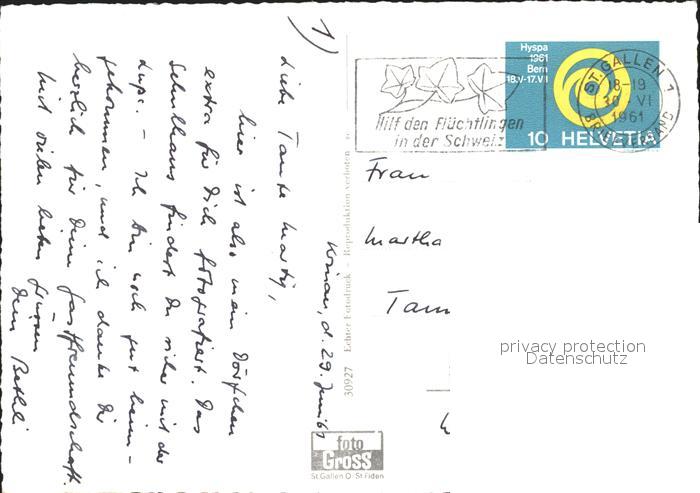 1)
Krinau, d. 29. Juni 61
Liebe Tante Marthy,
hier ist also mein Dörfchen
extra für Dich fotografiert. Das
Schulhaus findest Du sicher mit der
Lupe. – Ich bin noch gut heim-
gekommen, und ich danke Dir
herzlich für Deine Gastfreundschaft.
Mit vielen lieben Grüssen
Dein Betheli
30927 Echter Fotodruck - Reproduktion verboten
foto
Gross
St.Gallen O-St.Fiden
Hilf den Flüchtlingen
in der Schweiz
Hyspa
1961
Bern
18.V-17.VII
10 HELVETIA
ST. GALLEN 1
18-19
30 VI
1961
BRIEFVERSAND
Frau
Martha
Tam
privacy protection
Datenschutz